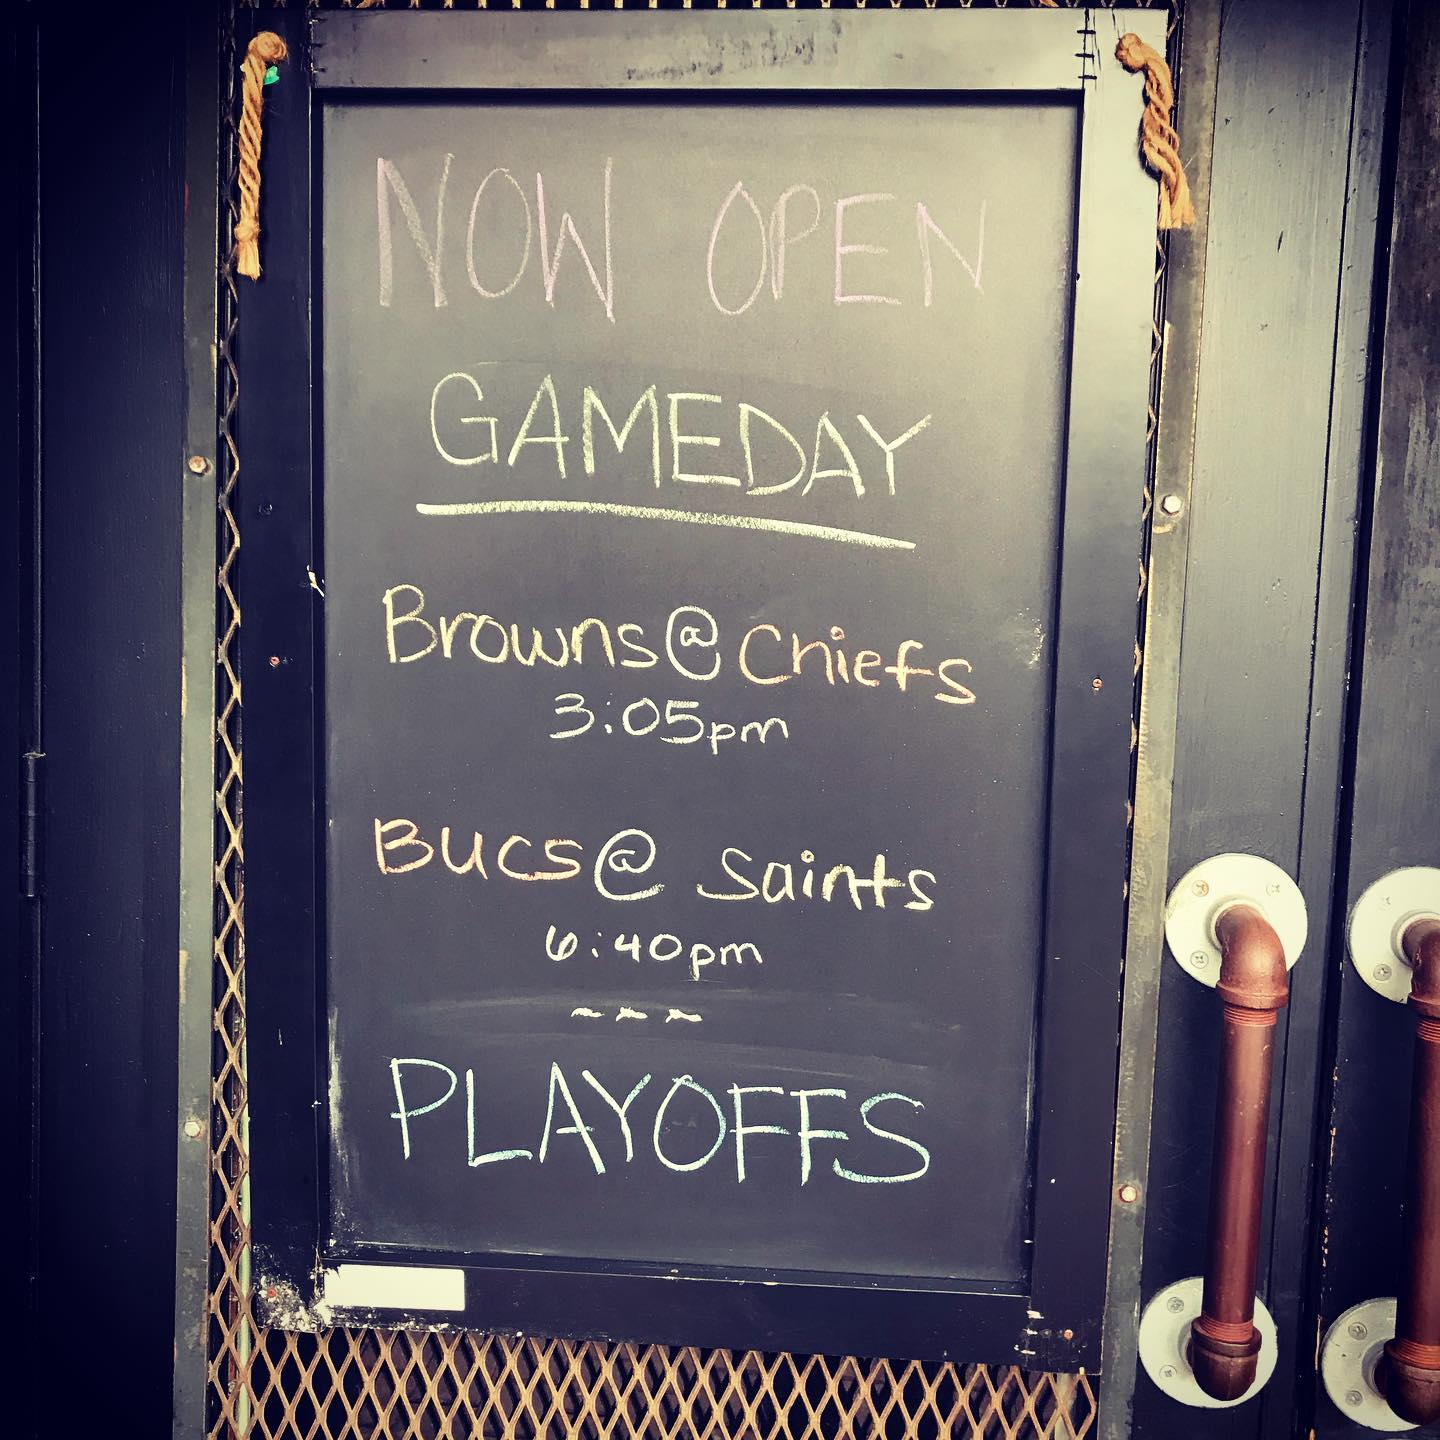 NOW OPEN
GAMEDAY
Browns @ Chiefs
3:05pm
BUCS @ Saints
6:40pm
~~~
PLAYOFFS